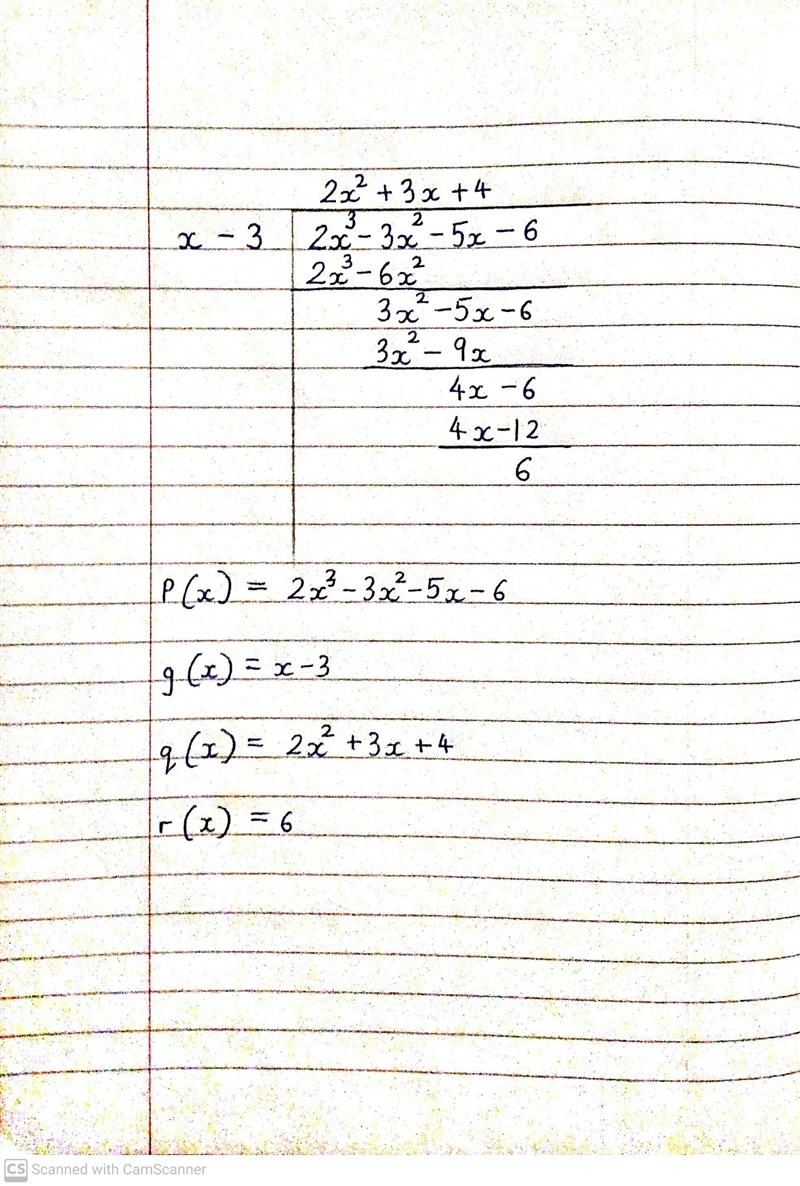 2x² + 3x + 4
x - 3 2x³ - 3x² - 5x - 6
2x³ - 6x²
3x² - 5x - 6
3x² - 9x
4x - 6
4x - 12
6
P(x) = 2x³ - 3x² - 5x - 6
g(x) = x - 3
q(x) = 2x² + 3x + 4
r(x) = 6
CS Scanned with CamScanner